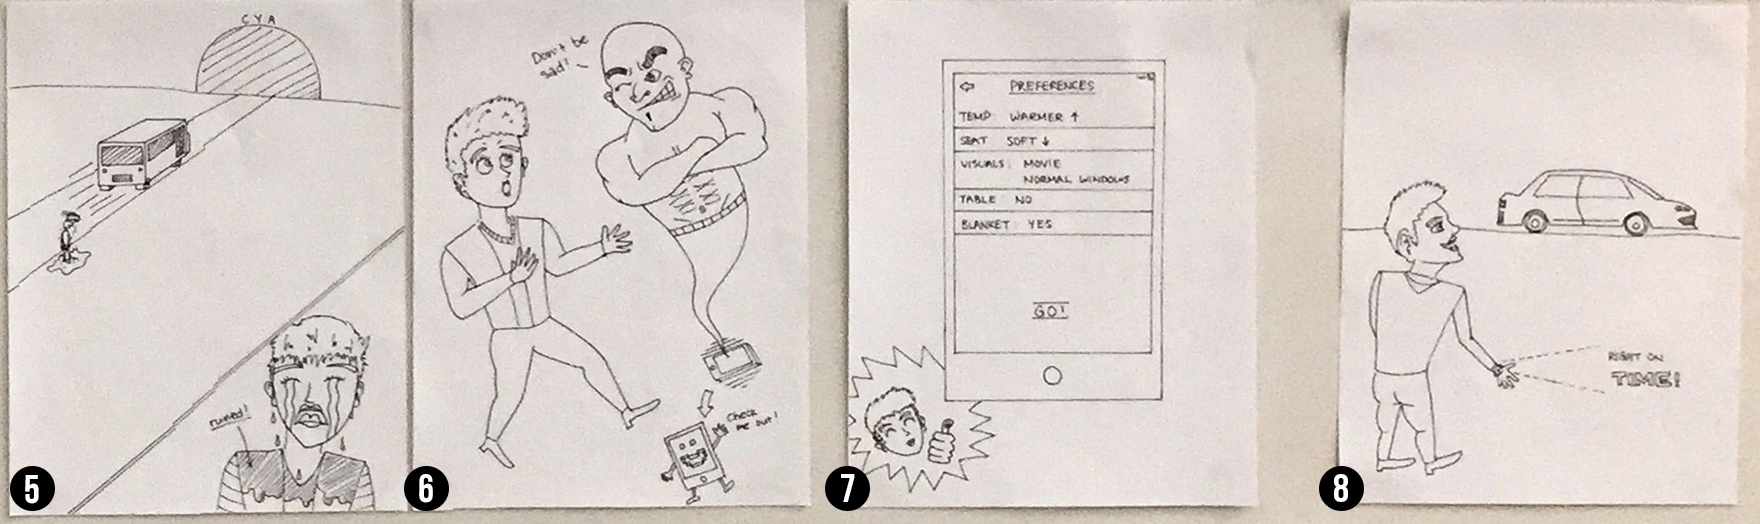 CYA
ruined!
5
Don't be
sad!
Check
me out!
6
PREFERENCES
TEMP: WARMER ↑
SEAT SOFT ↓
VISUALS: MOVIE
NORMAL WINDOWS
TABLE NO
BLANKET: YES
GO!
7
RIGHT ON
TIME!
8